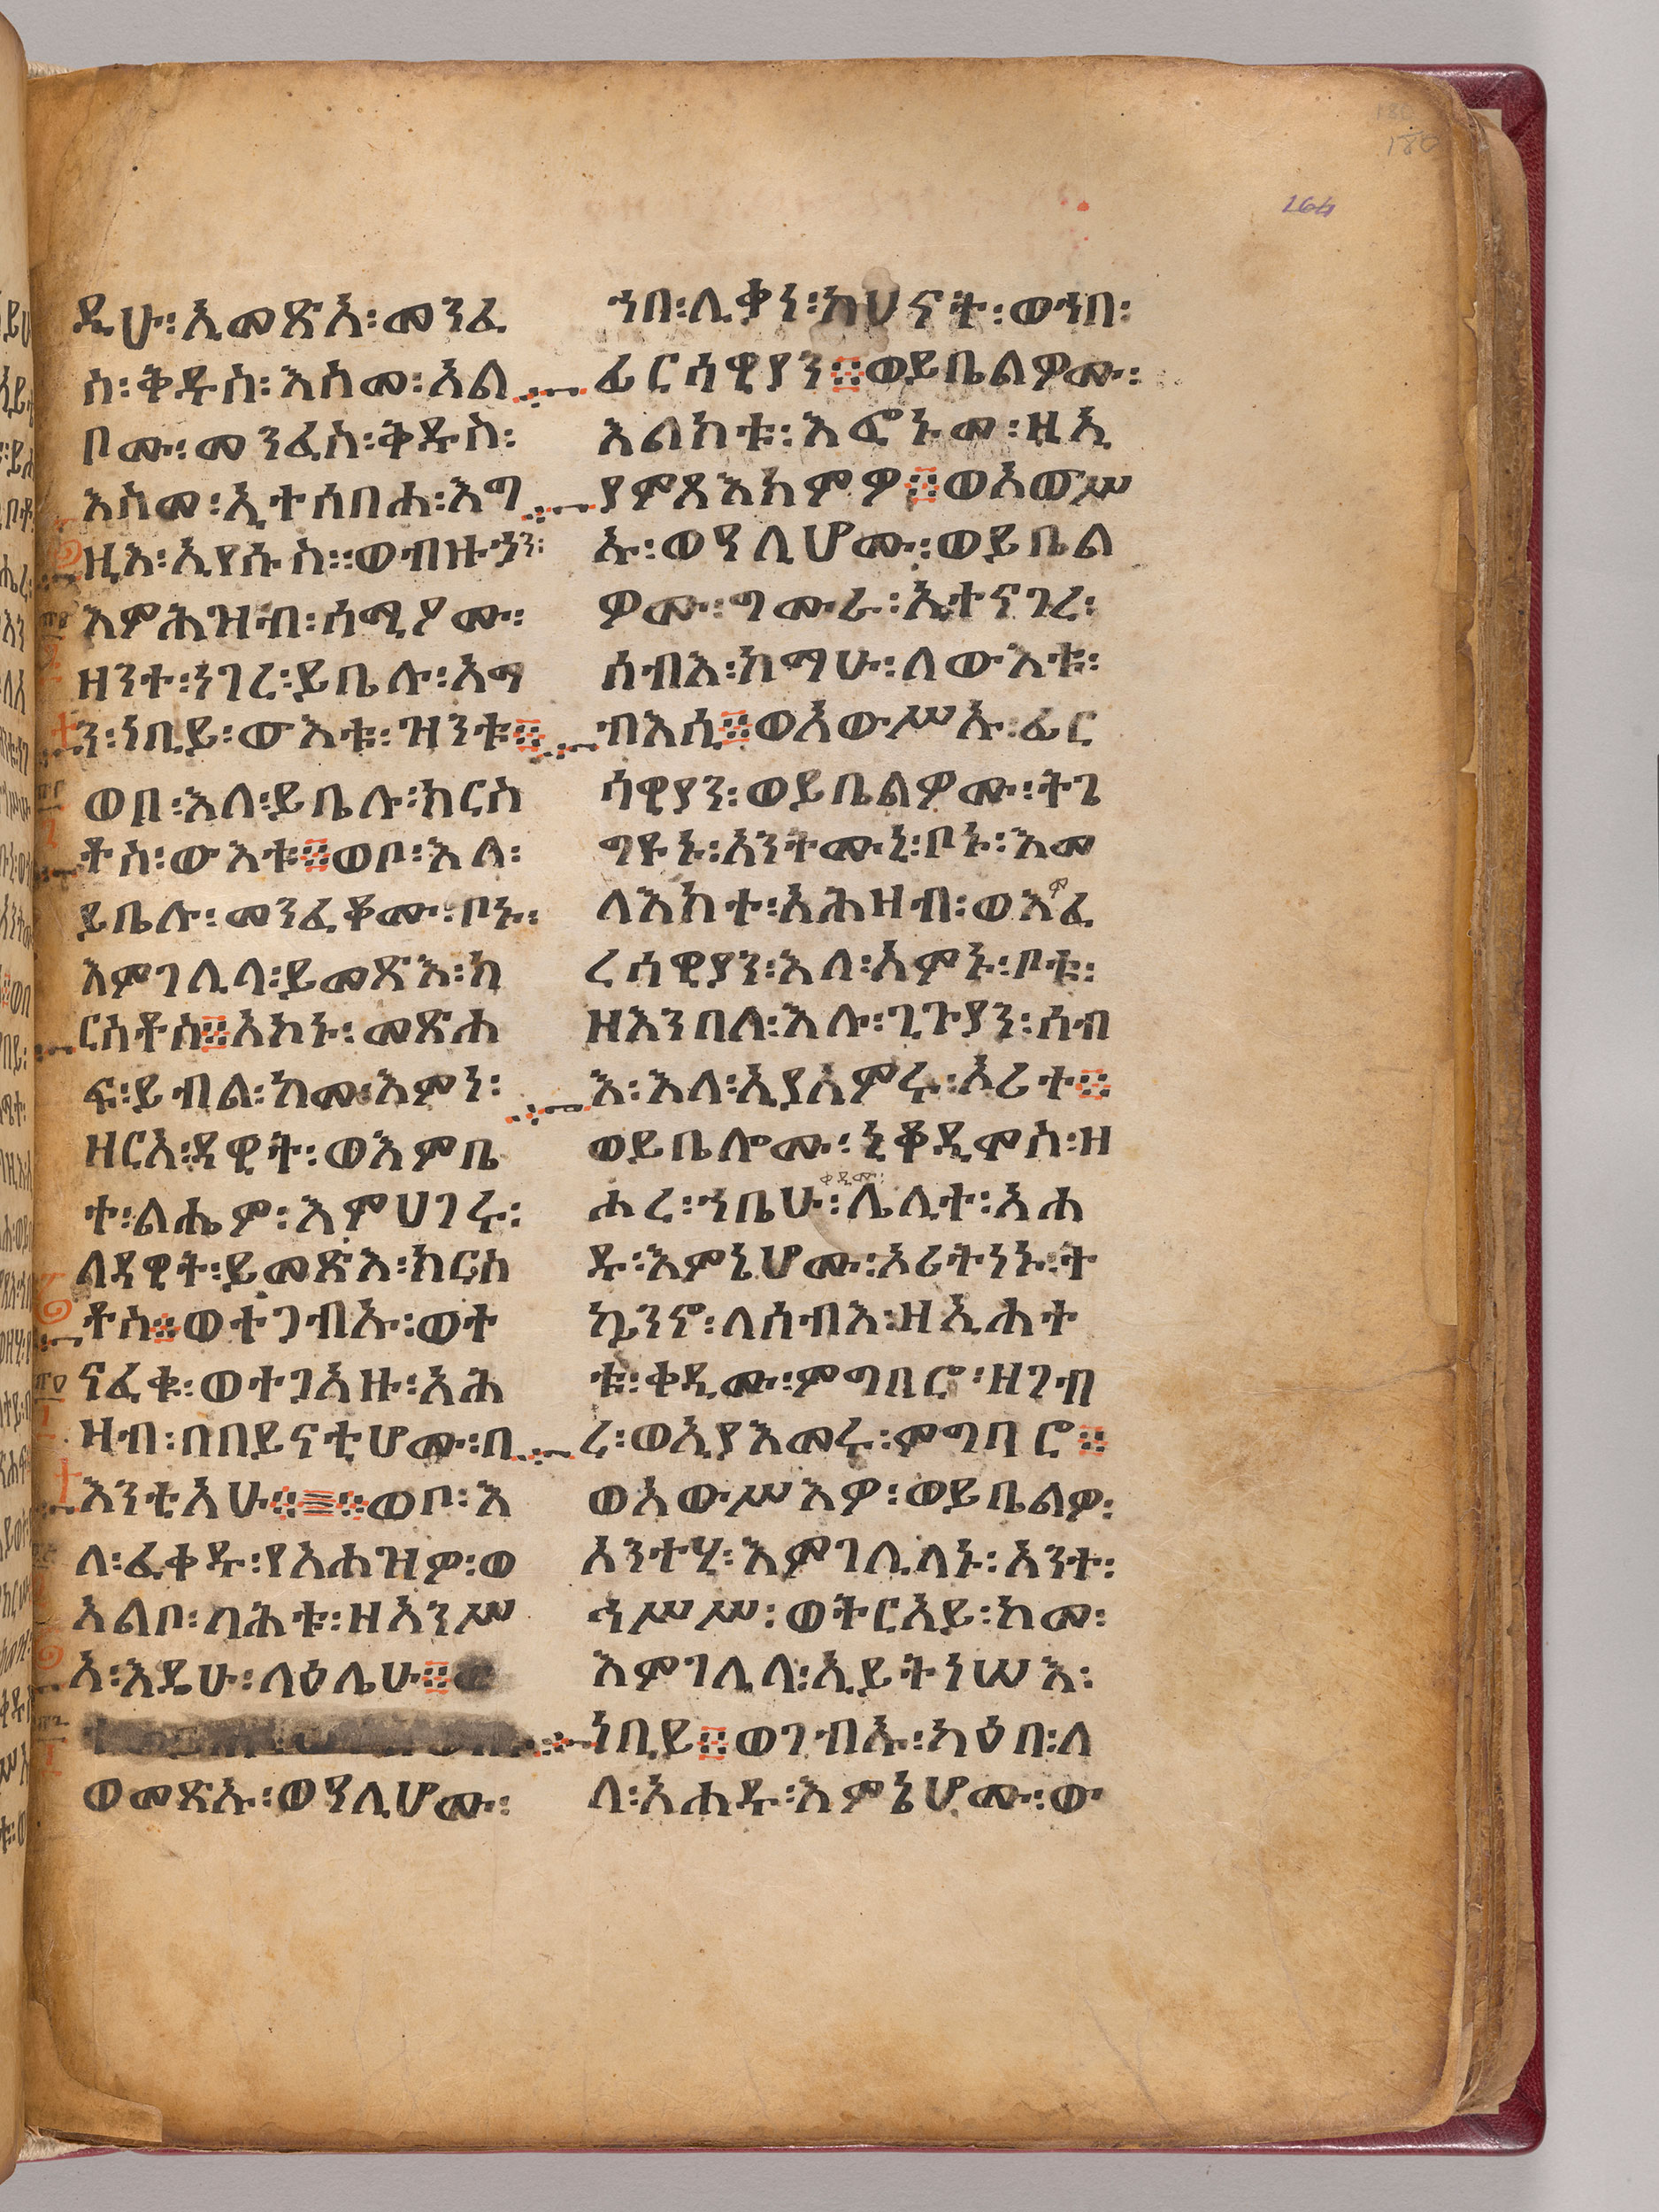 ዲሁ፡ኢመጽአ፡መንፈ
ስ፡ቅዱስ፡እስመ፡አል
ቦሙ፡መንፈስ፡ቅዱስ፡
እስመ፡ኢተሰበሐ፡እግ
ዚእ፡ኢየሱስ፡፡ወብዙኃን፡
እምሕዝብ፡ሰሚዖሙ፡
ዘንተ፡ነገረ፡ይቤሉ፡አማ
ን፡ነቢይ፡ውእቱ፡ዝንቱ፨
ወቦ፡እለ፡ይቤሉ፡ክርስ
ቶስ፡ውእቱ፨ወቦ፡እለ፡
ይቤሉ፡መንፈቆሙ፡ቦኑ፡
እምገሊላ፡ይመጽእ፡ክ
ርስቶስ፨አኮኑ፡መጽሐ
ፍ፡ይብል፡ከመ፡እምነ፡
ዘርአ፡ዳዊት፡ወእምቤ
ተ፡ልሔም፡እምሀገሩ፡
ለዳዊት፡ይመጽእ፡ክርስ
ቶስ፨ወተጋብኡ፡ወተ
ናፈቁ፡ወተጋአዙ፡አሕ
ዛብ፡በበይናቲሆሙ፡በ
እንቲአሁ፨፨ወቦ፡እ
ለ፡ፈቀዱ፡የአሐዝዎ፡ወ
አልቦ፡ባሕቱ፡ዘአንሥ
አ፡እዴሁ፡ላዕሌሁ፨
ወመጽኡ፡ወዓሊሆሙ፡
ኀበ፡ሊቃነ፡ካህናት፡ወኀበ፡
ፊርሳዊያን፨ወይቤልዎሙ፡
እልክቱ፡እፎኑመ፡ዘኢ
ያምጻእክምዎ፨ወአውሥ
ኡ፡ወዓሊሆሙ፡ወይቤል
ዎሙ፡ግሙራ፡ኢተናገረ፡
ሰብእ፡ከማሁ፡ለውእቱ፡
ብእሲ፨ወአውሥኡ፡ፊር
ሳዊያን፡ወይቤልዎሙ፡ትጌ
ግዩኑ፡አንትሙኒ፡ቦኑ፡እመ
ላእክተ፡አሕዛብ፡ወእምፈ
ረሳዊያን፡እለ፡አምኑ፡ቦቱ፡
ዘእንበለ፡እሉ፡ጊጉያን፡ሰብ
እ፡እለ፡ኢያአምሩ፡ኦሪተ፨
ወይቤሎሙ፡ኒቆዲሞስ፡ዘ
ቀዲሙ፡
ሖረ፡ኀቤሁ፡ሌሊተ፡አሐ
ዱ፡እምኔሆሙ፡ኦሪትነኑ፡ት
ኴንኖ፡ለሰብእ፡ዘኢሕተ
ቱ፡ቀዲሙ፡ምግባሮ፡ዘገብ
ረ፡ወኢያእመሩ፡ምግባሮ፨
ወአውሥእዎ፡ወይቤልዎ፡
አንተሂ፡እምገሊላኑ፡አንተ፡
ኅሥሥ፡ወትርአይ፡ከመ፡
እምገሊላ፡ኢይትነሣእ፡
ነቢይ፨ወገብኡ፡ካዕበ፡ለ
ለ፡አሐዱ፡እምኔሆሙ፡ው
164
180